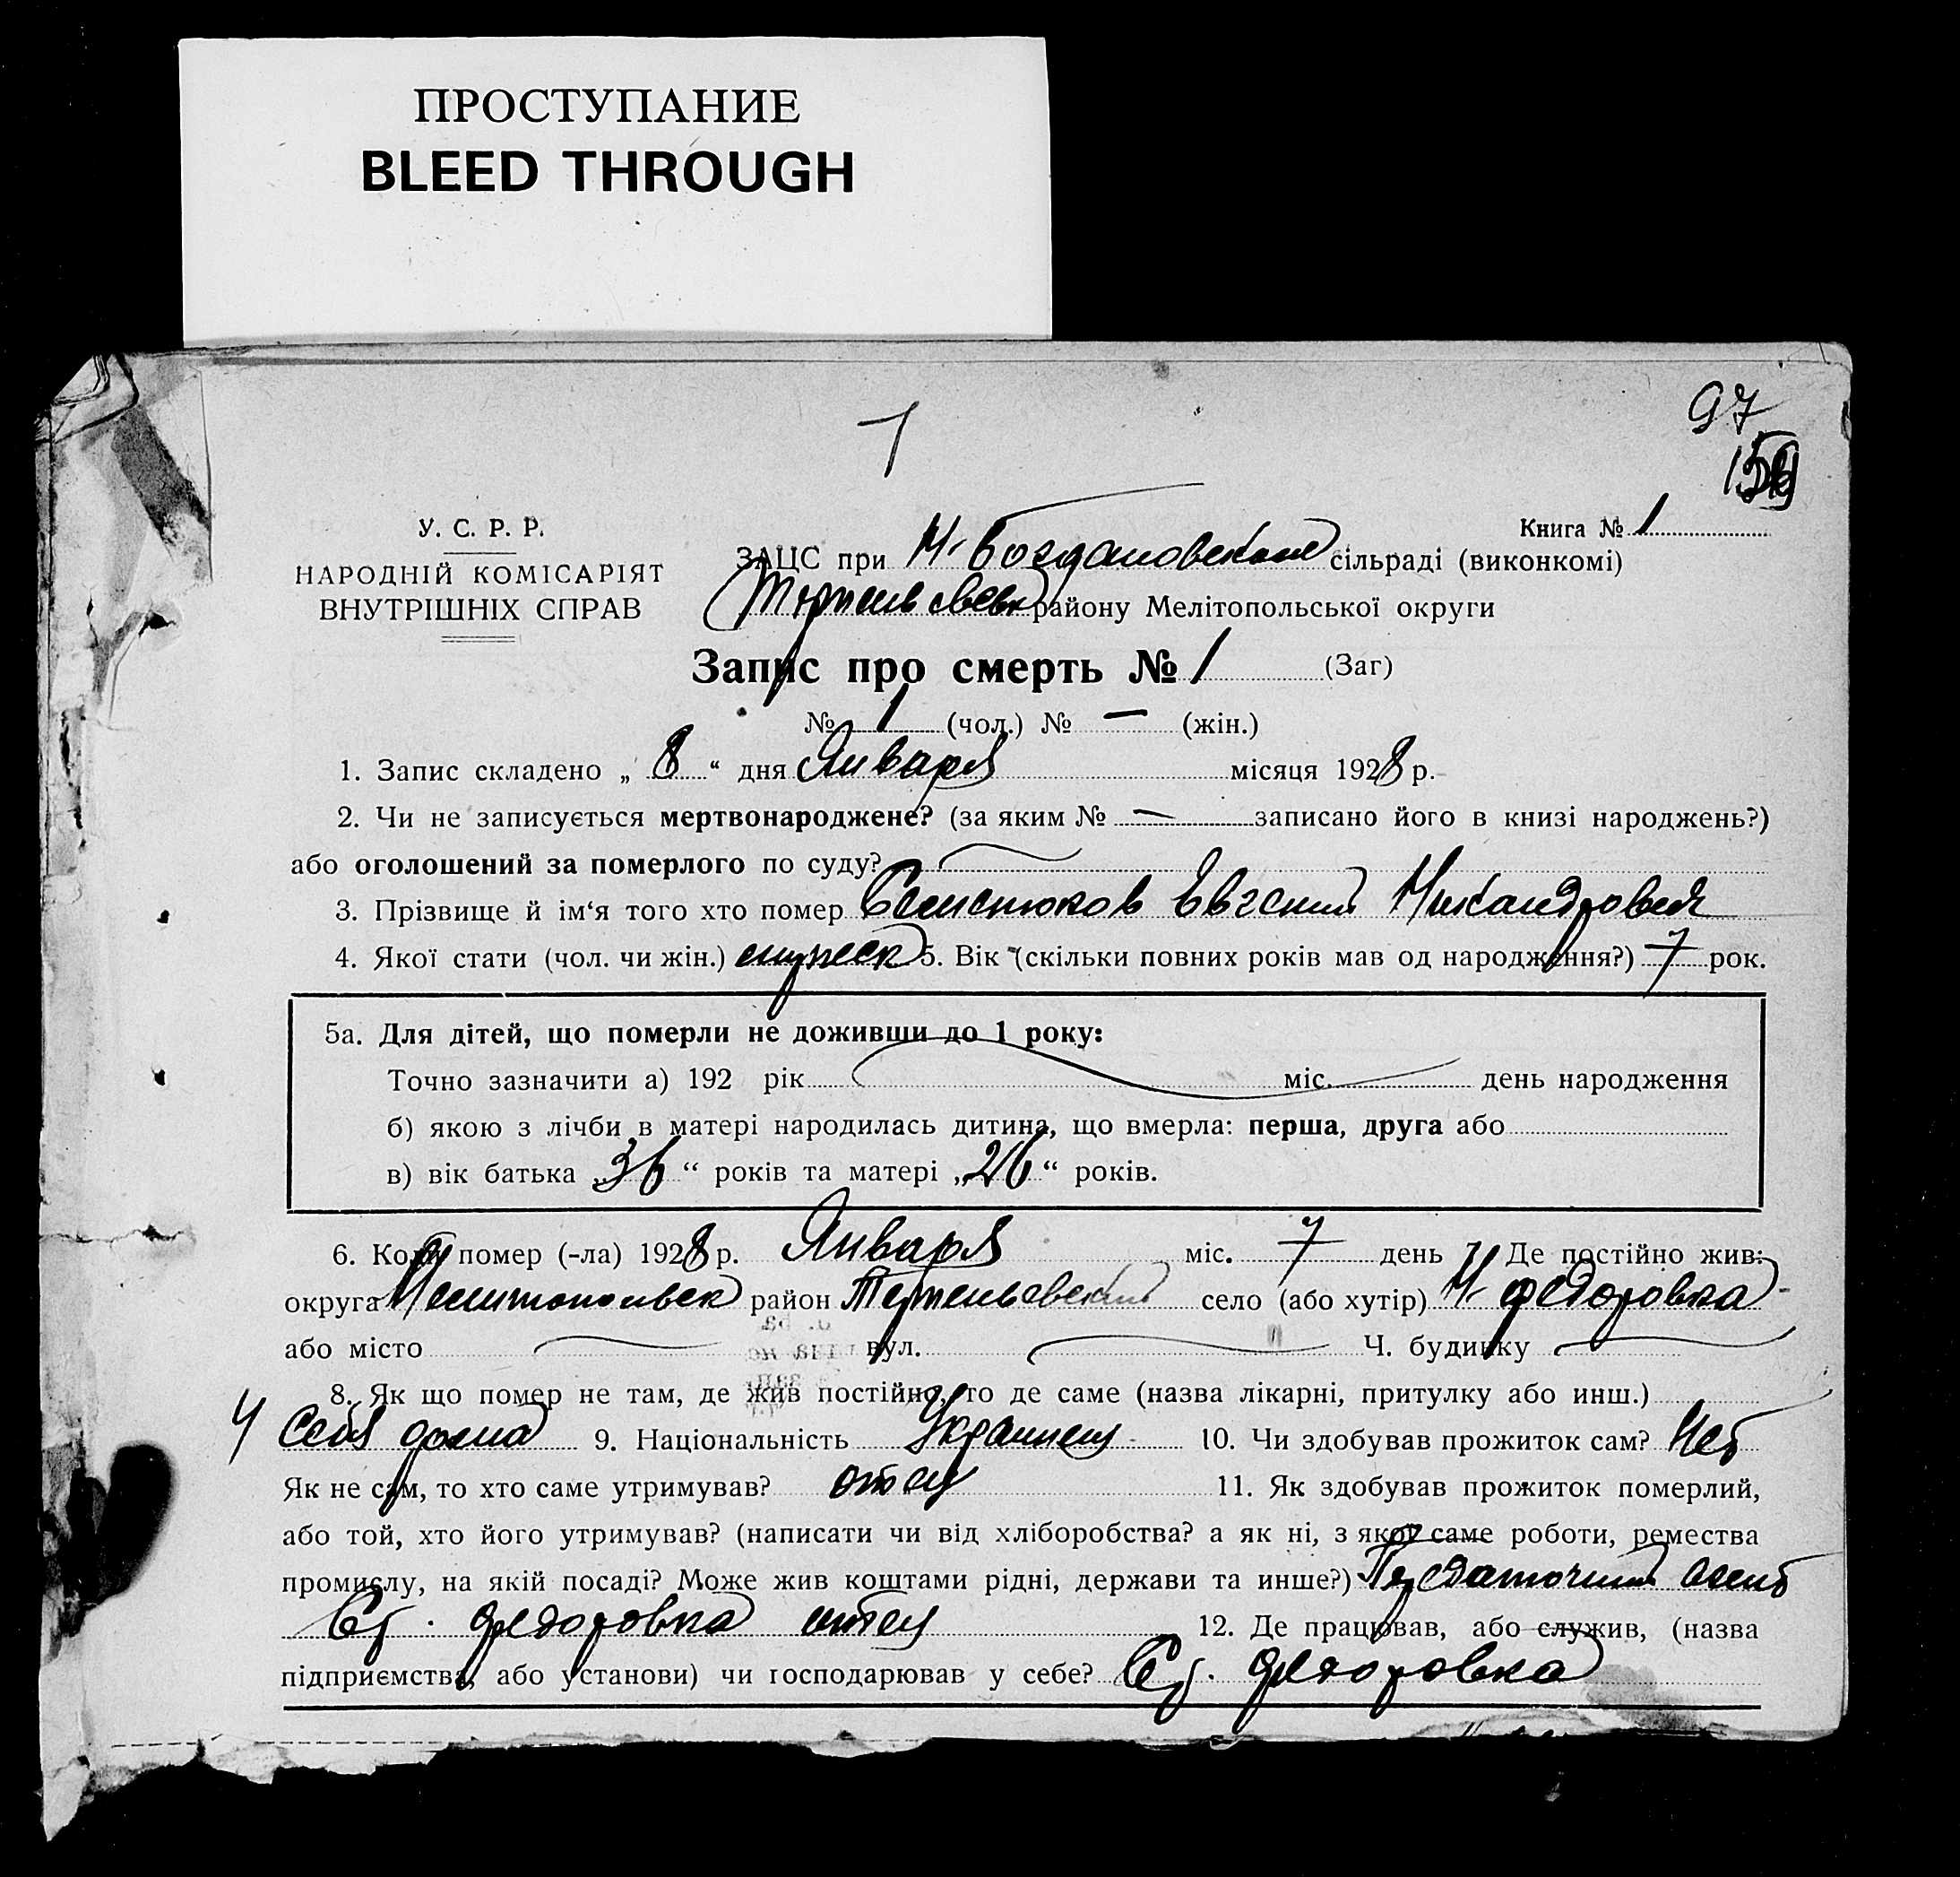 ПРОСТУПАНИЕ
BLEED THROUGH
1
97
У. С. Р. Р.
НАРОДНІЙ КОМІСАРІЯТ
ВНУТРІШНІХ СПРАВ
Книга № 1
ЗАЦС при Н-Богдановском сільраді (виконкомі)
Терпеньевск району Мелітопольської округи
Запис про смерть № 1 (Заг)
№ 1 (чол.) № — (жін.)
1. Запис складено „ 8 “ дня Января місяця 1928 р.
2. Чи не записується мертвонароджене? (за яким № — записано його в книзі народжень?)
або оголошений за померлого по суду?
3. Прізвище й ім‘я того хто помер Евгений Никандрович
4. Якої стати (чол. чи жін.) мужск 5. Вік (скільки повних років мав од народження?) 7 рок.
5а. Для дітей, що померли не доживши до 1 року:
Точно зазначити а) 192 рік міс. день народження
б) якою з лічби в матері народилась дитина, що вмерла: перша, друга або
в) вік батька „36“ років та матері „26“ років.
6. Коли помер (-ла) 1928 р. Января міс. 7 день 7. Де постійно жив:
округа Мелитопольск район Терпеньевский село (або хутір) Н-Федоровка
або місто вул. Ч. будинку
8. Як що помер не там, де жив постійно, то де саме (назва лікарні, притулку або инш.)
У себя дома 9. Національність Украинец 10. Чи здобував прожиток сам? Нет
Як не сам, то хто саме утримував? отец 11. Як здобував прожиток померлий,
або той, хто його утримував? (написати чи від хліборобства? а як ні, з якої саме роботи, ремества
промислу, на якій посаді? Може жив коштами рідні, держави та инше?) Передаточный агент
Ст. Федоровка отец 12. Де працював, або служив, (назва
підприємства, або установи) чи господарював у себе? Ст. Федоровка